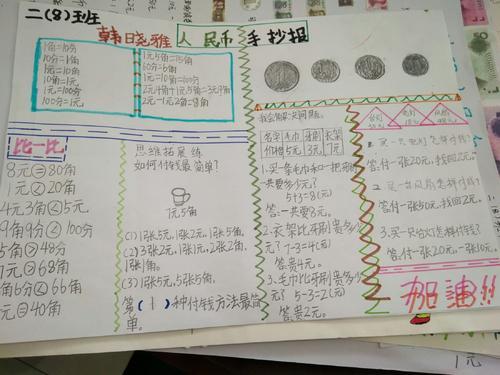 二(8)班
韩晓雅 人民币手抄报
1角=10分
10分=1角
1元=10角
10角=1元
1元=100分
100分=1元
1元5角=15角
60分=6角
1元=10角=100分
2元4角+1元5角=3元9角
2元-1元2角=8角
比一比
8元=80角
1元<20角
4元3角<5元
9角9分<100分
5角>48分
7元>68角
角6分<66角
元=40角
思维拓展练
如何付钱最简单?
1元5角
(1)1张5元,1张2元,1张5角。
(2)3张2元,1张1元,2张2角,
1张1角。
(3)1张5元,5张5角。
第(1)种付钱方法最简
单。
名字 毛巾 牙刷 衣架
价格 5元 3元 7元
1.买一条毛巾和一把牙刷
一共要多少元?
5+3=8(元)
答:一共要8元。
2.衣架比牙刷贵多少
元? 7-3=4(元)
答:贵4元。
3.毛巾比牙刷贵多少
元? 5-3=2(元)
答:贵2元。
答:付一张20元,找回2元。
答:付一张50元,找回2元。
加油!!
1元